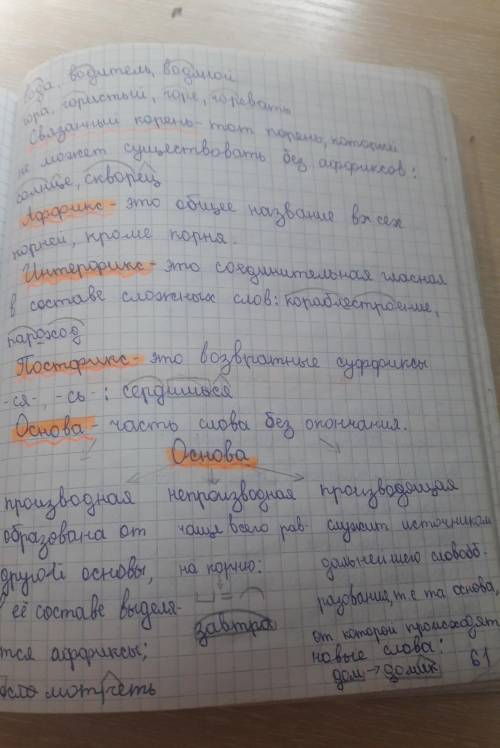 вода, водитель, водяной
гора, гористый, горе, горевать
Связанный корень - тот корень, который
не может существовать без аффиксов:
солнце, скворец
Аффикс - это общее название всех
корней, кроме корня.
Интерфикс - это соединительная гласная
в составе сложных слов: кораблестроение,
пароход
Постфикс - это возвратные суффиксы
-ся-, -сь-: сердишься
Основа - часть слова без окончания.
Основа
производная непроизводная производящая
образована от чаще всего рав- служит источником
другой основы, на корню: дальнейшего словооб-
в её составе выделя- завтра разования, т.е та основа,
тся аффиксы; от которой происходят
новые слова:
смотреть дом → домик 61